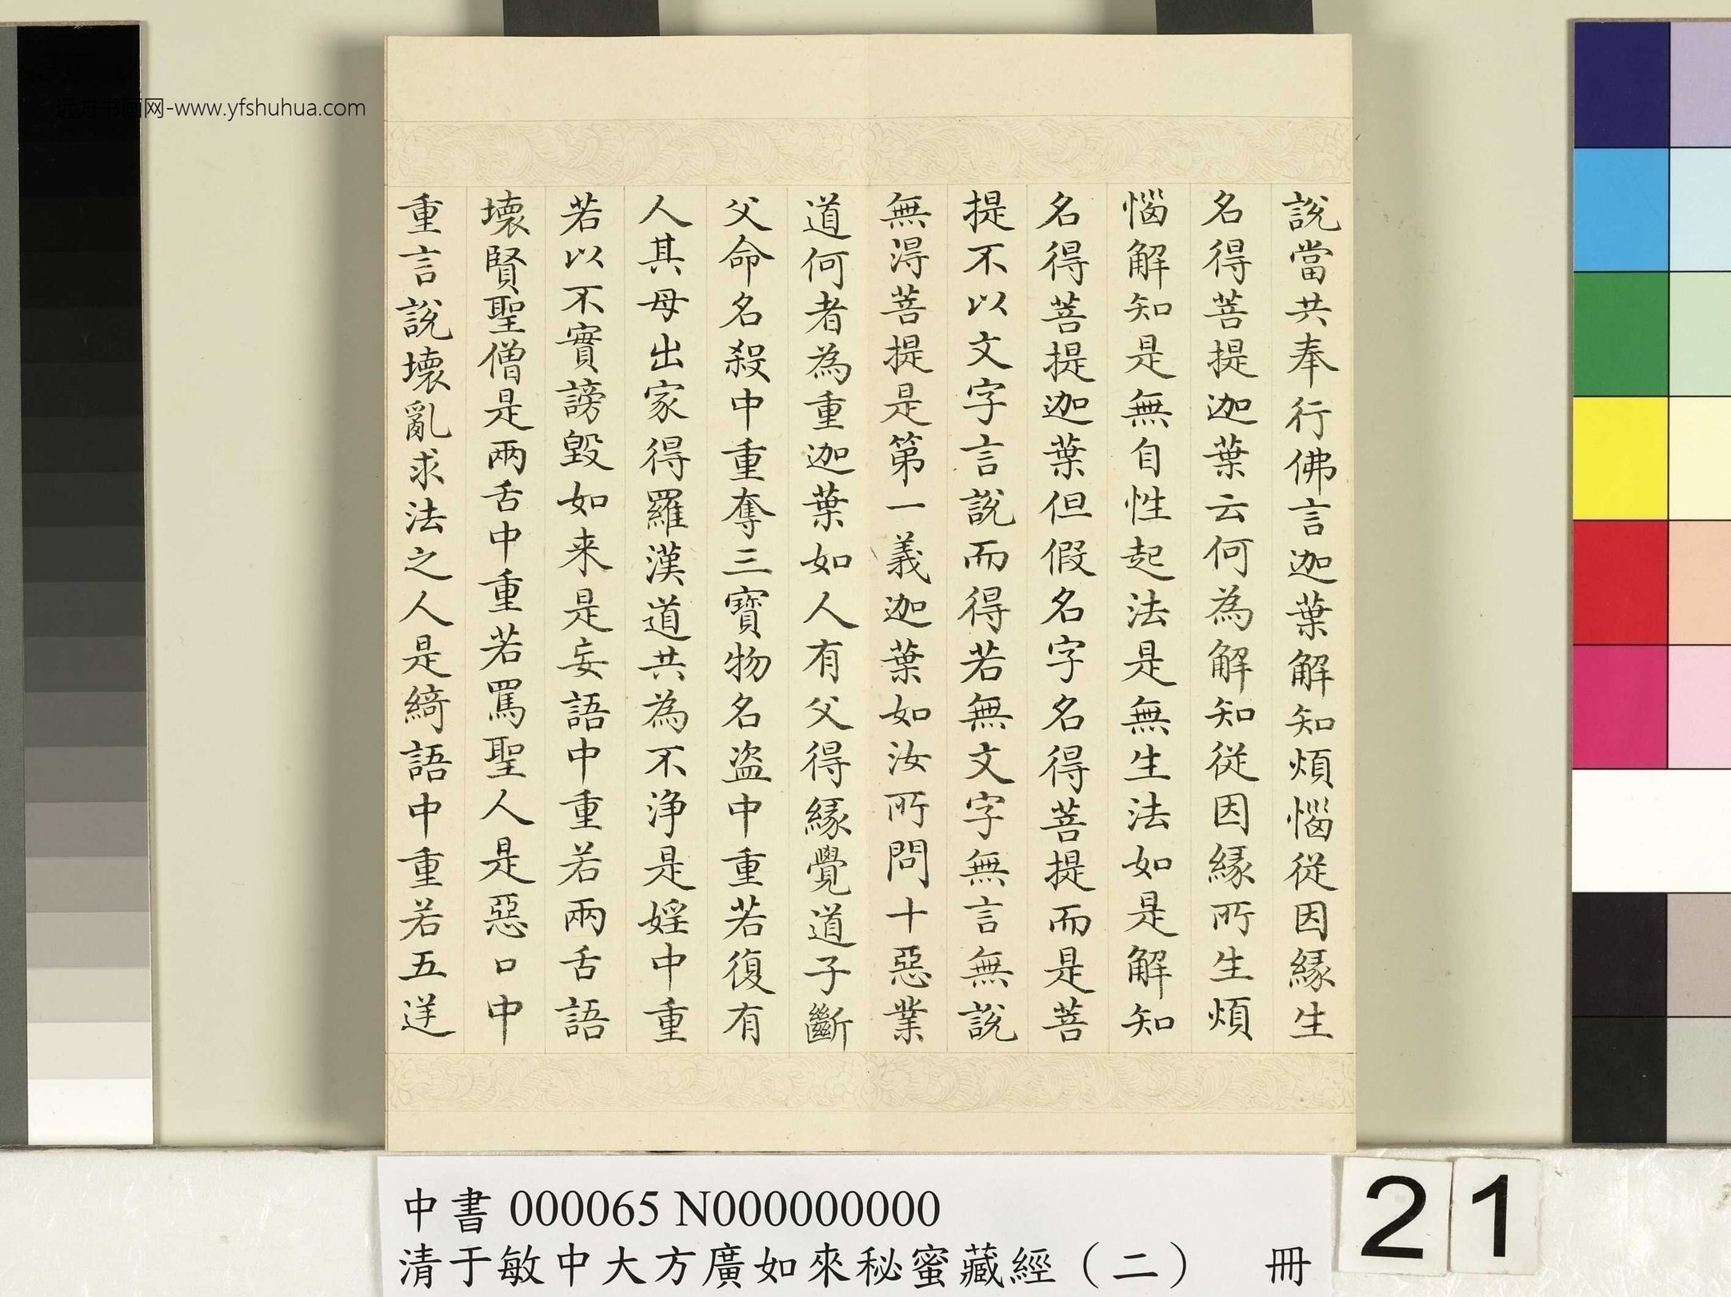 说當共奉行佛言迦葉解知煩惱從因緣生
名得菩提迦葉云何為解知從因緣所生煩
惱解知是無自性起法是無生法如是解知
名得菩提迦葉但假名字名得菩提而是菩
提不以文字言說而得若無文字無言無說
無得菩提是第一義迦葉如汝所問十惡業
道何者為重迦葉如人有父得緣覺道子斷
父命名殺中重奪三寶物名盜中重若復有
人其母出家得羅漢道共為不淨是婬中重
若以不實謗毀如来是妄語中重若兩舌語
壞賢聖僧是兩舌中重若罵聖人是惡口中
重言說壞亂求法之人是綺語中重若五逆
书画网-www.yfshuhua.com
中書 000065 N000000000
清于敏中大方廣如來秘蜜藏經（二） 冊
21